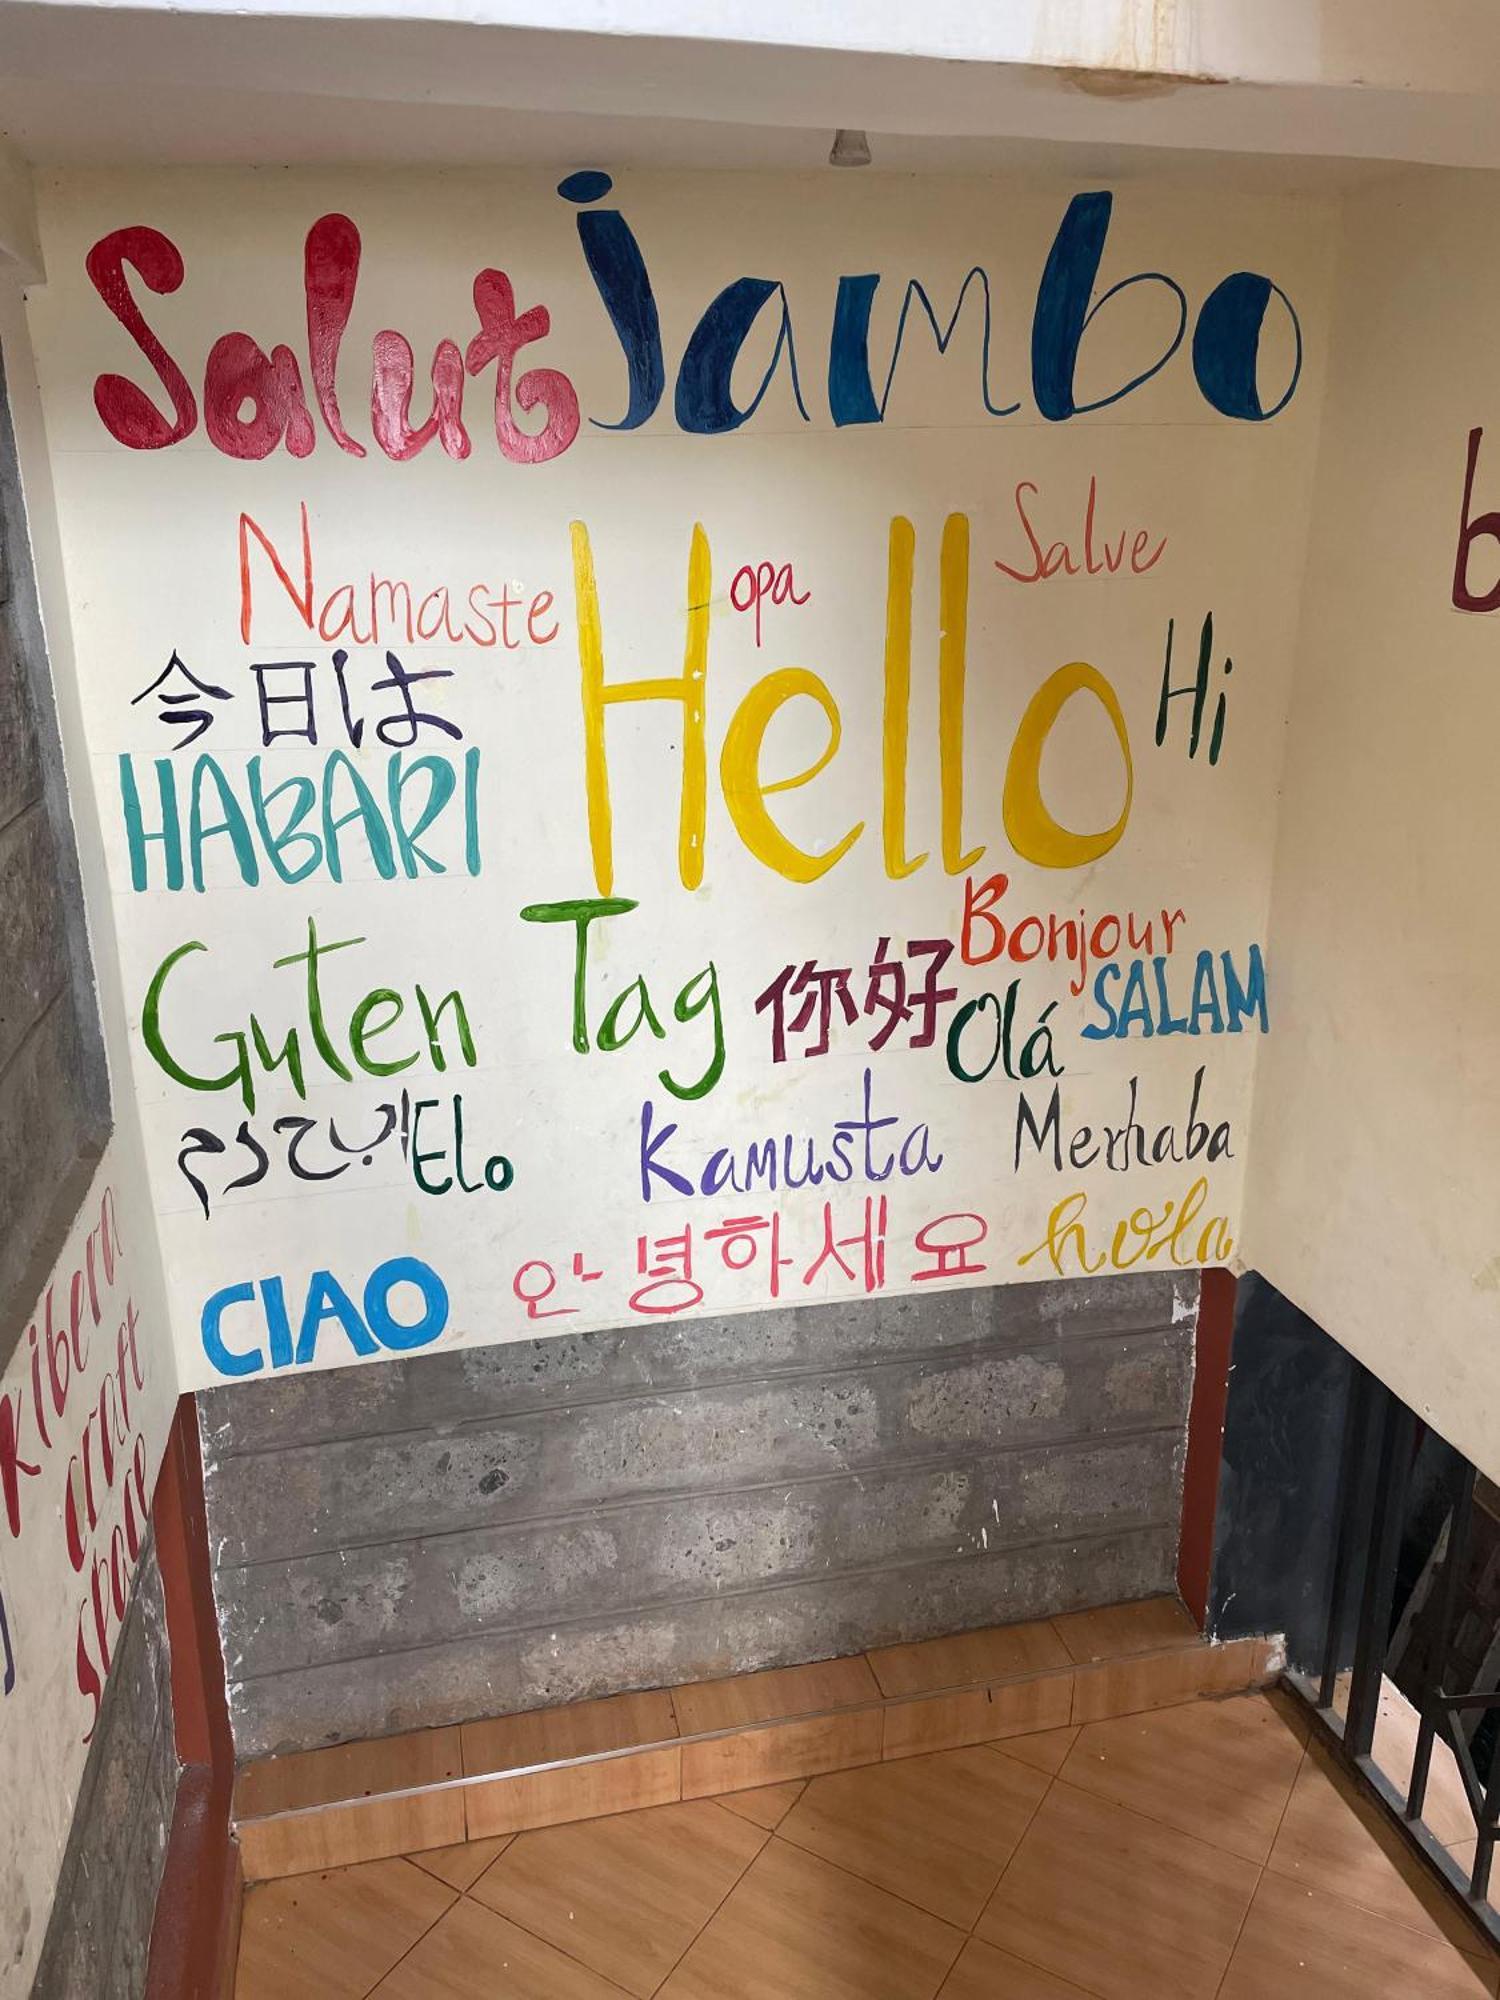 Salut jambo
Namaste
opa
Salve
Hello
Hi
今日は
HABARI
Guten Tag
你好
Bonjour
Olá
SALAM
Elo
Kamusta
Merhaba
CIAO
안녕하세요
hola
kibera
craft
space